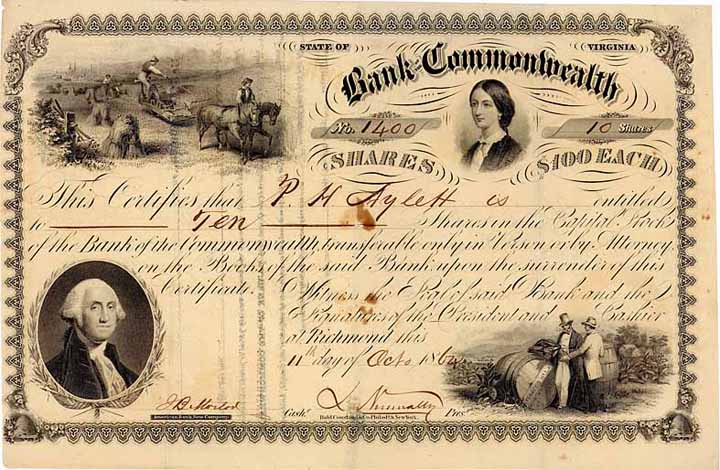 STATE OF VIRGINIA
Bank of Commonwealth
No. 1400
10 Shares
SHARES $100 EACH
This Certifies that P. H. Aylett is entitled
to Ten Shares in the Capital Stock
of the Bank of the Commonwealth, transferable only in Person or by Attorney
on the Books of the said Bank upon the surrender of this
Certificate. Witness the Seal of said Bank and the
Signatures of the President and Cashier
at Richmond this
11th day of Octo. 186
American Bank Note Company
Cash.r
L. Nunnally
Pres.t